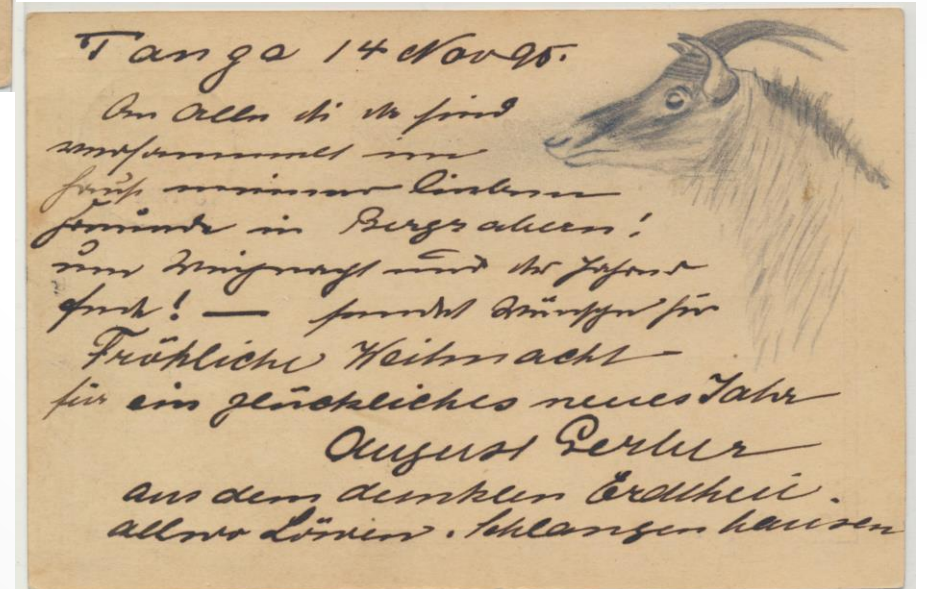 Tanga 14 Nov 95.
An Alle di da sind
versammelt im
Hause meiner lieben
Freunde in Bergzabern!
um Weihnacht und des Jahres
Ende! — sendet Wünsche für
Fröhliche Weihnacht
für ein glückliches neues Jahr
August Gerber
aus dem dunklen Erdtheil.
allwo Löwen. Schlangen hausen